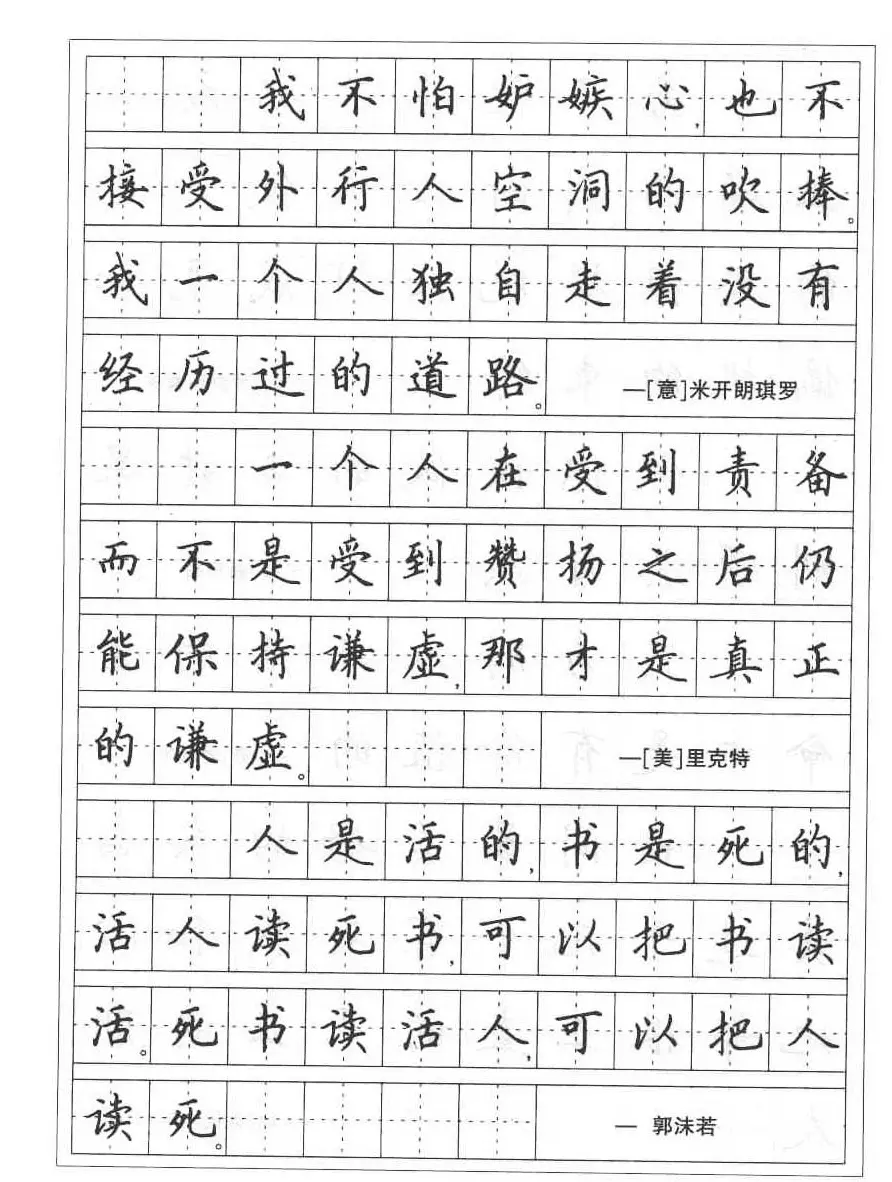 我不怕妒嫉心,也不
接受外行人空洞的吹捧。
我一个人独自走着没有
经历过的道路。 —[意]米开朗琪罗
一个人在受到责备
而不是受到赞扬之后仍
能保持谦虚,那才是真正
的谦虚。 —[美]里克特
人是活的,书是死的,
活人读死书,可以把书读
活。死书读活人,可以把人
读死。 — 郭沫若